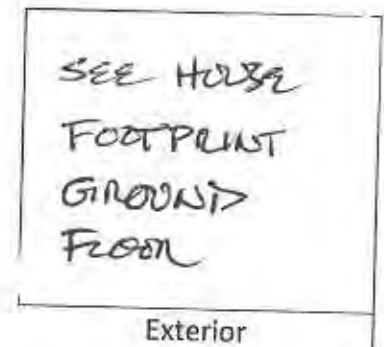 SEE HOUSE
FOOTPRINT
GROUND
FLOOR
Exterior